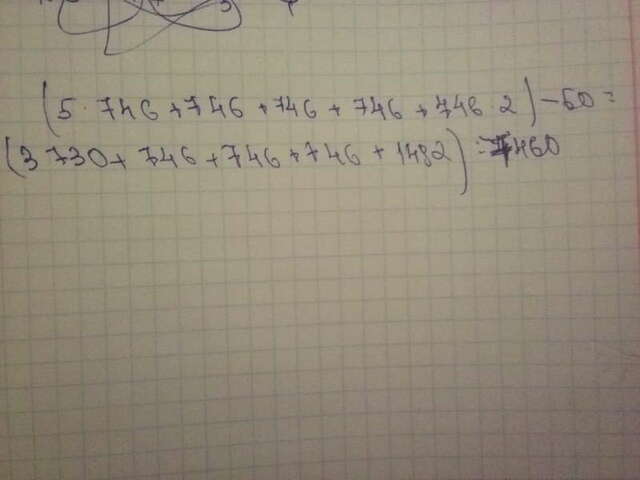 (5 · 746 + 746 + 746 + 746 + 746 · 2) - 60 =
(3 730 + 746 + 746 + 746 + 1492) = 7460